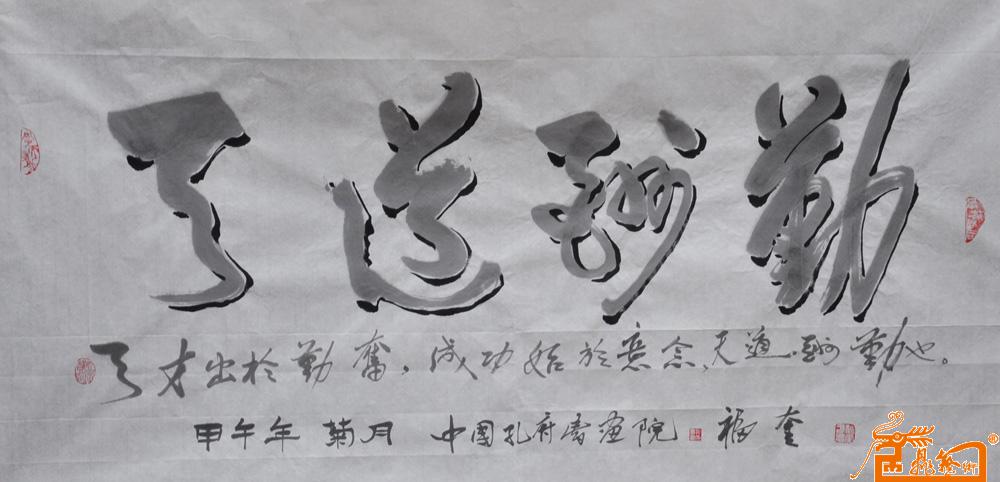 天道酬勤
天才出於勤奮，成功始於意念，天道酬勤也。
甲午年 菊月 中國孔府書畫院 福奎